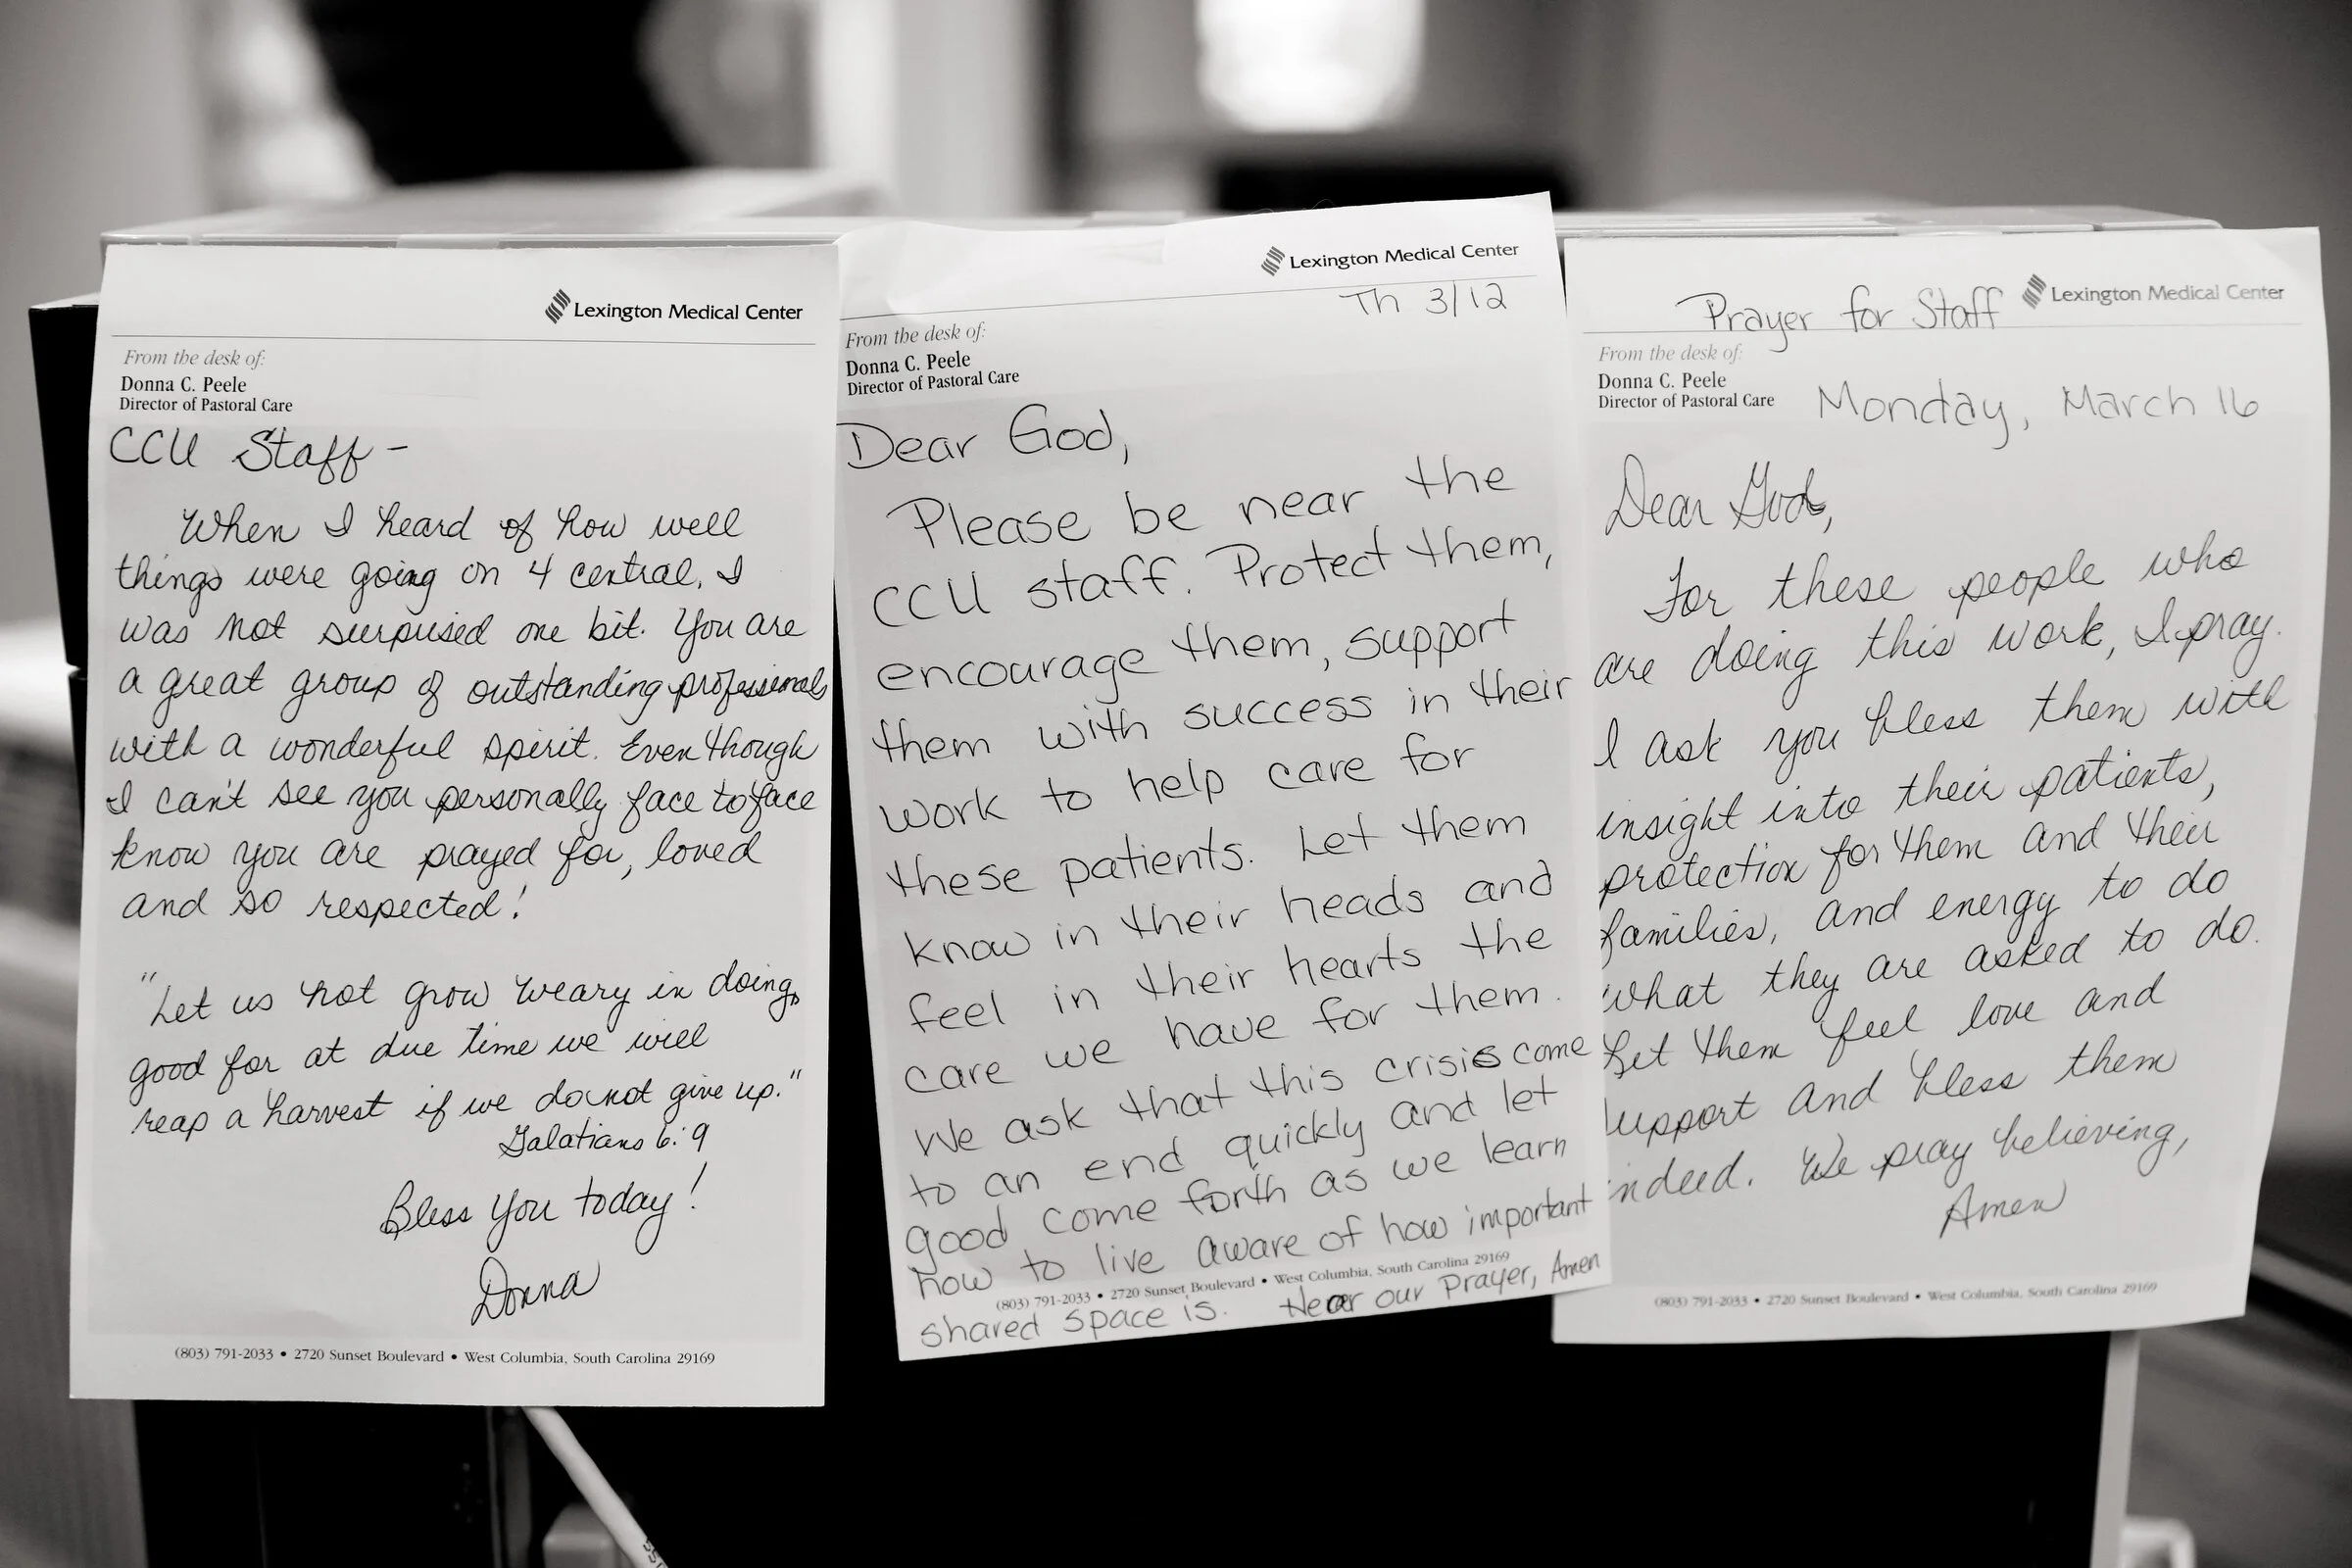 Lexington Medical Center
From the desk of:
Donna C. Peele
Director of Pastoral Care
CCU Staff -
When I heard of how well
things were going on 4 central, I
was not surprised one bit. You are
a great group of outstanding professionals
with a wonderful spirit. Even though
I can't see you personally face to face
know you are prayed for, loved
and so respected!
"Let us not grow weary in doing
good for at due time we will
reap a harvest if we do not give up."
Galatians 6:9
Bless You today!
Donna
(803) 791-2033 • 2720 Sunset Boulevard • West Columbia, South Carolina 29169
Lexington Medical Center
Th 3/12
From the desk of:
Donna C. Peele
Director of Pastoral Care
Dear God,
Please be near the
CCU staff. Protect them,
encourage them, support
them with success in their
work to help care for
these patients. Let them
know in their heads and
feel in their hearts the
care we have for them.
We ask that this crisis come
to an end quickly and let
good come forth as we learn
how to live aware of how important
(803) 791-2033 • 2720 Sunset Boulevard • West Columbia, South Carolina 29169
shared space is. Hear our Prayer, Amen
Prayer for Staff
Lexington Medical Center
From the desk of:
Donna C. Peele
Director of Pastoral Care
Monday, March 16
Dear God,
For these people who
are doing this work, I pray.
I ask you bless them with
insight into their patients,
protection for them and their
families, and energy to do
what they are asked to do.
Let them feel love and
support and bless them
indeed. We pray believing,
Amen
(803) 791-2033 • 2720 Sunset Boulevard • West Columbia, South Carolina 29169